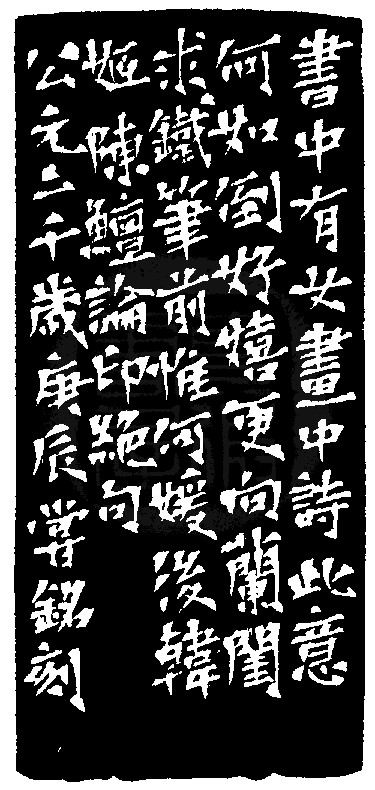 書中有女畫中詩此意
何如倒好嬉更向蘭閨
求鐵筆前惟何媛後韓
姬陳鱣論印絕句
公元二千歲庚辰嘗銘刻